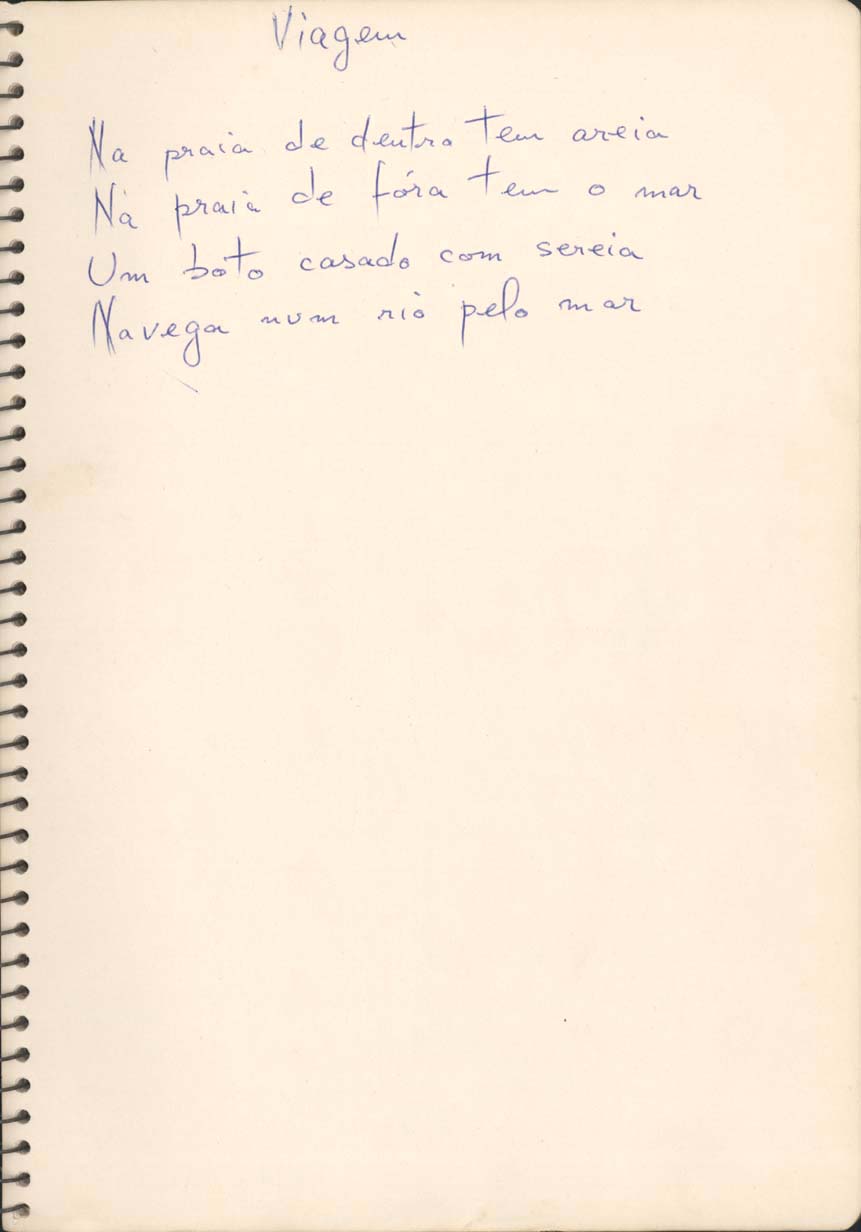 Viagem
Na praia de dentro tem areia
Na praia de fóra tem o mar
Um boto casado com sereia
Navega num rio pelo mar